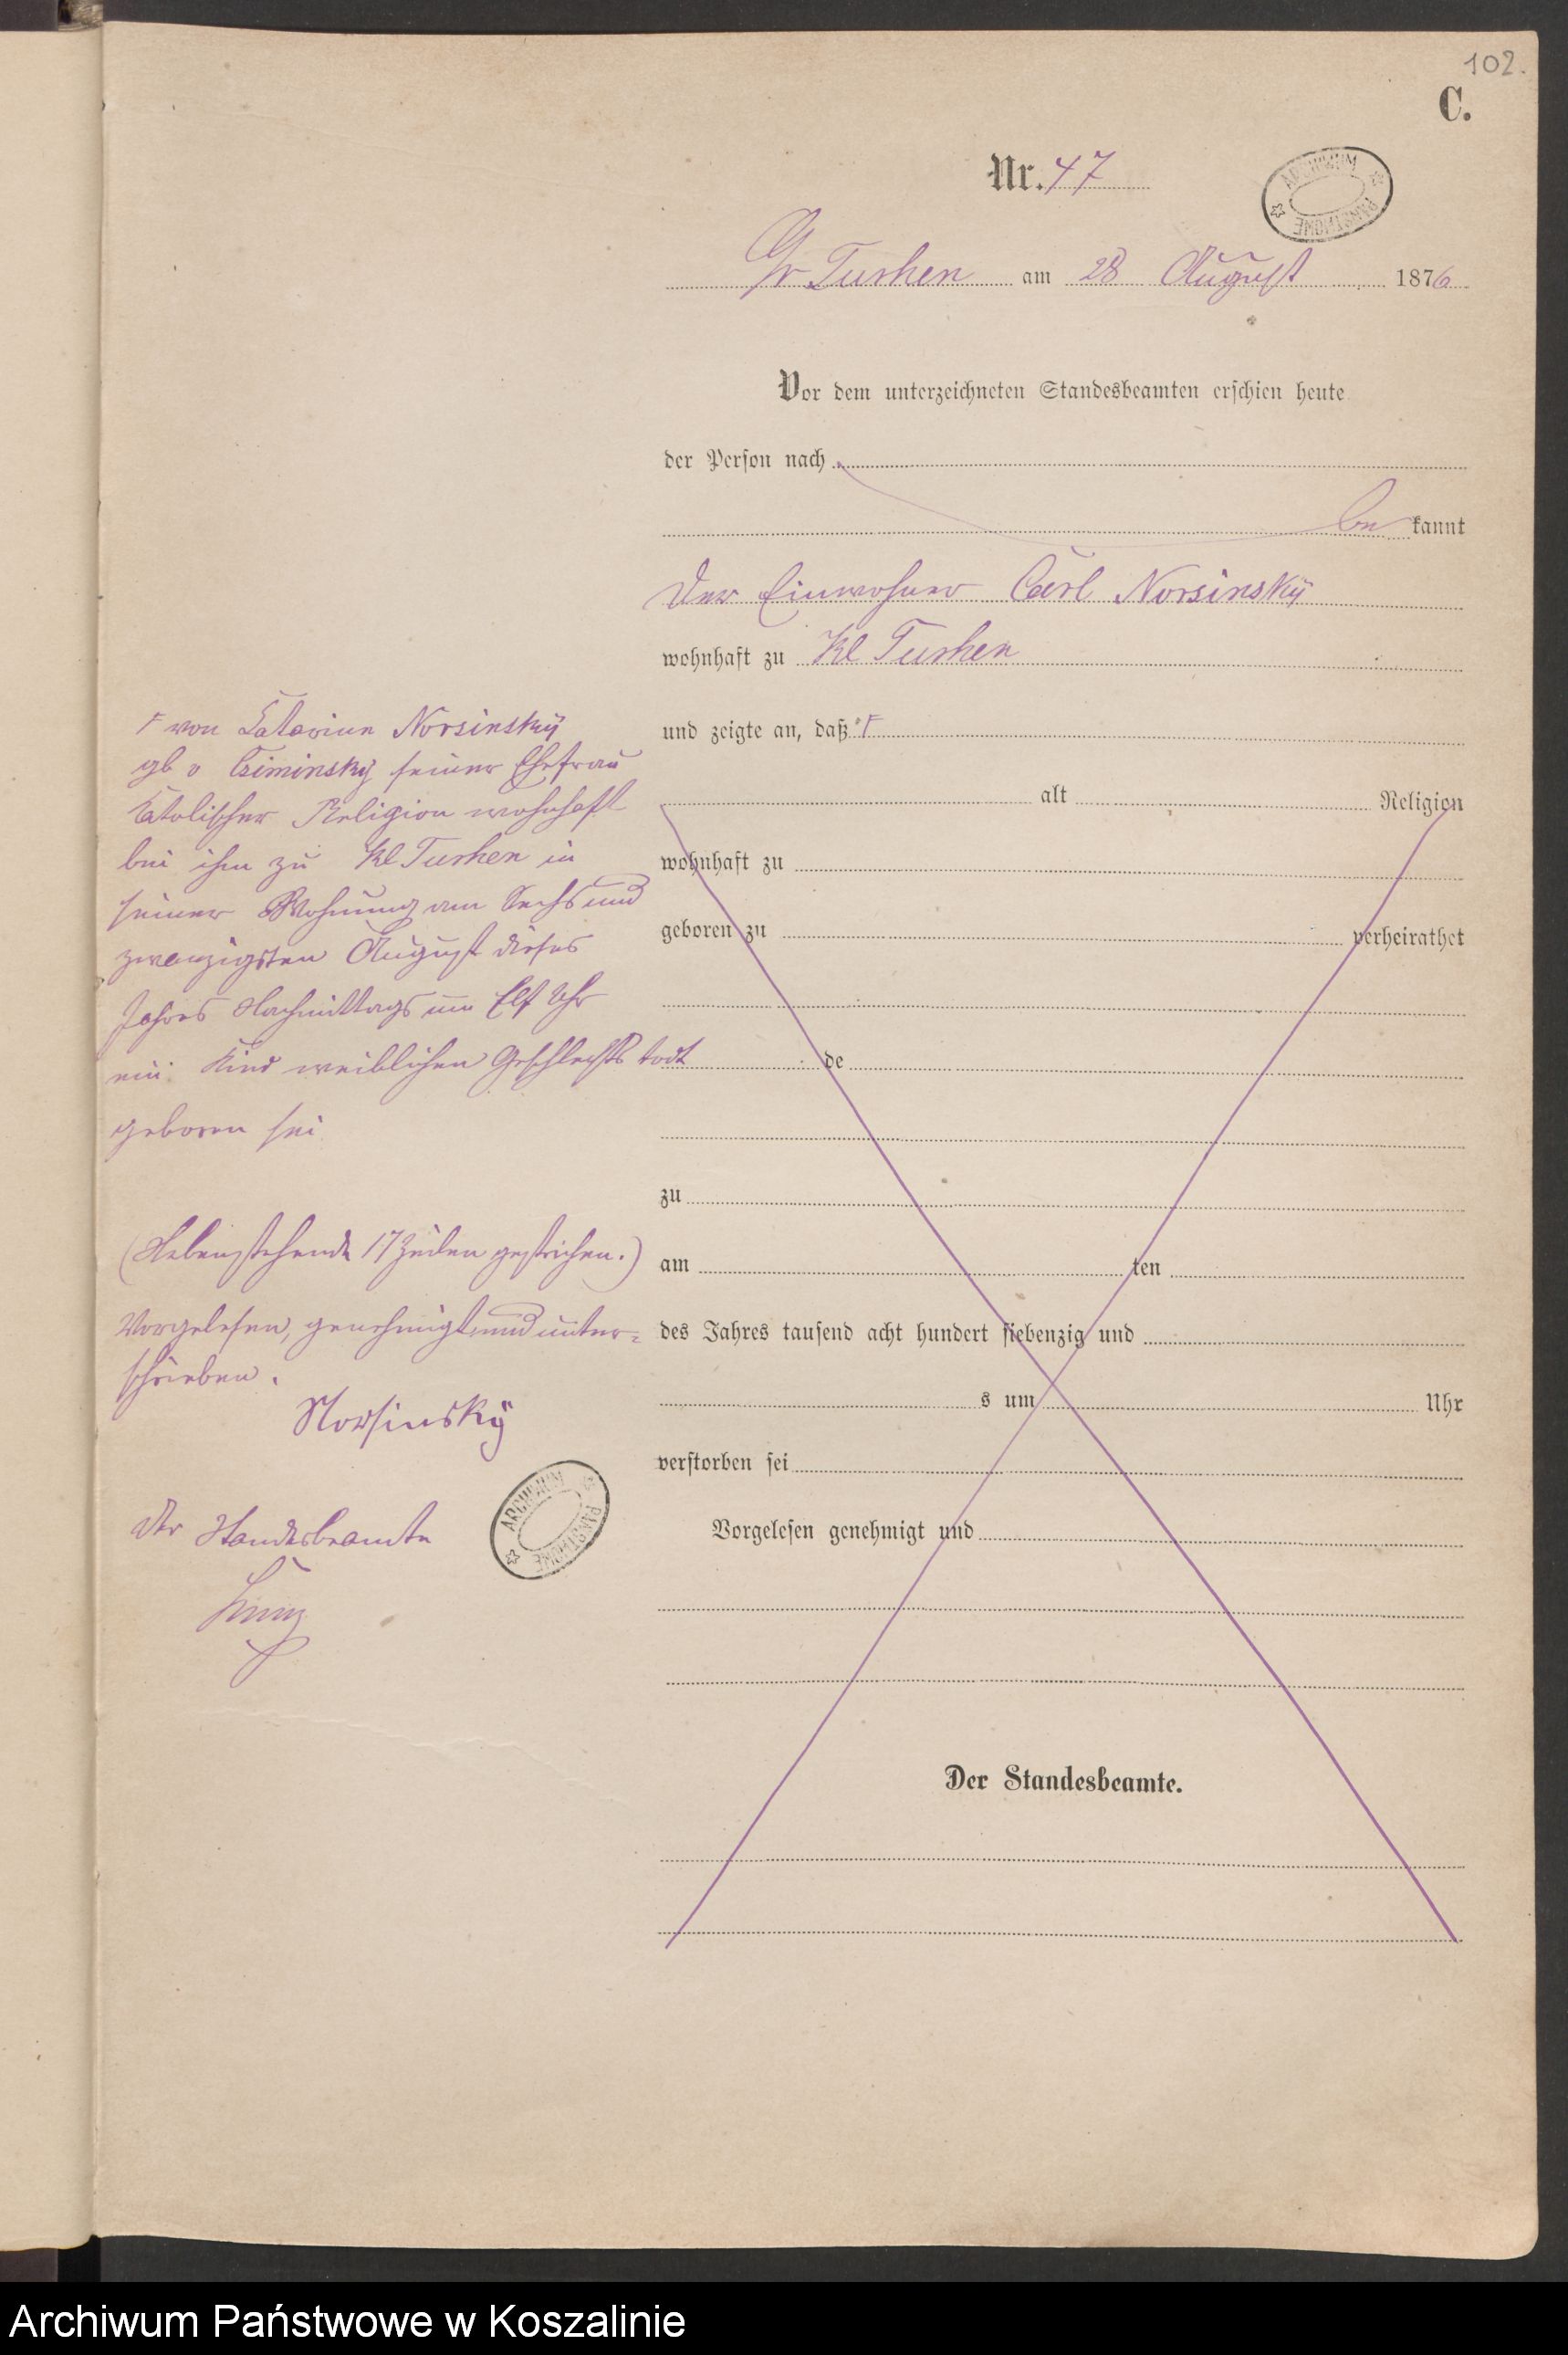 102.
C.
Nr. 47
ARCHIWUM PAŃSTWOWE
Gr Tuchen am 28 August 1876
Vor dem unterzeichneten Standesbeamten erschien heute
der Person nach
be kannt
Der Einwohner Carl Norsinský
wohnhaft zu Kl Tuchen
und zeigte an, daß F
F von Catarina Norsinský
gb v Cziminský seiner Ehefrau
Catolischer Religion wohnhaft
bei ihm zu Kl Tuchen in
seiner Wohnung am Sechs und
zwanzigsten August dieses
Jahres Nachmittags um Elf Uhr
ein Kind weiblichen Geschlechts todt
geboren sei
(Nebenstehende 17 Zeilen gestrichen.)
Vorgelesen, genehmigt und unter-
schrieben.
Norsinský
ARCHIWUM PAŃSTWOWE
Der Standesbeamte
alt Religion
wohnhaft zu
geboren zu verheirathet
de
zu
am ten
des Jahres tausend acht hundert siebenzig und
s um Uhr
verstorben sei
Vorgelesen genehmigt und
Der Standesbeamte.
Archiwum Państwowe w Koszalinie